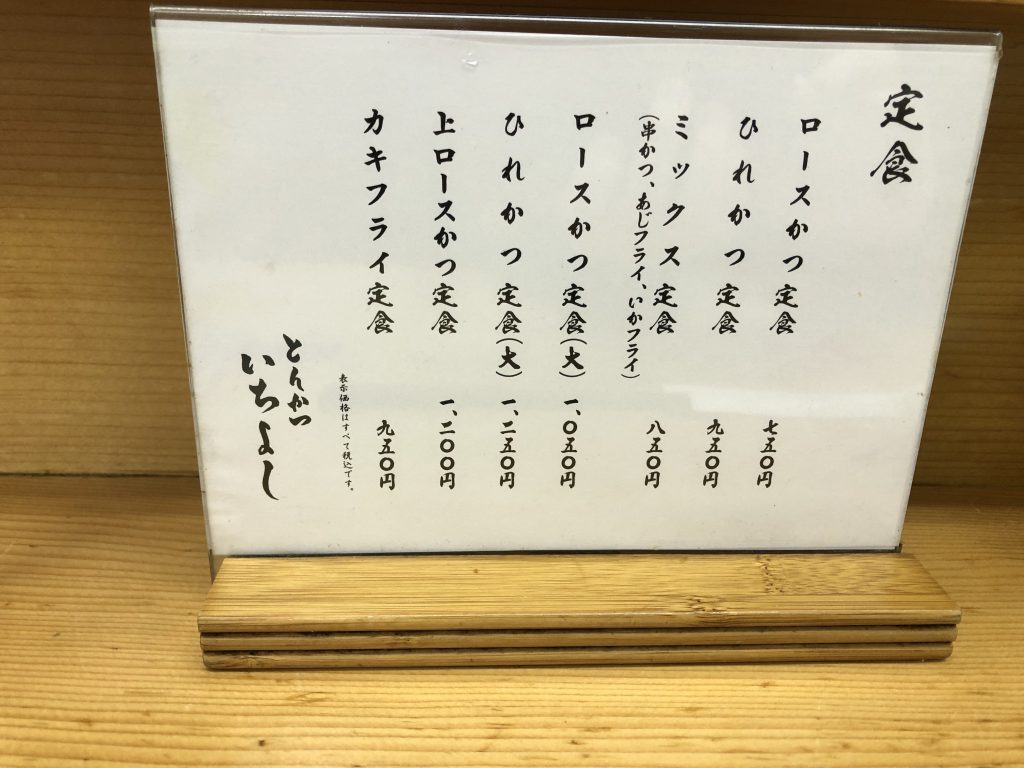 定食
ロースかつ定食 七五〇円
ひれかつ定食 九五〇円
ミックス定食 八五〇円
（串かつ、あじフライ、いかフライ）
ロースかつ定食（大） 一、〇五〇円
ひれかつ定食（大） 一、二五〇円
上ロースかつ定食 一、二〇〇円
カキフライ定食 九五〇円
表示価格はすべて税込です。
とんかつ
いちよし